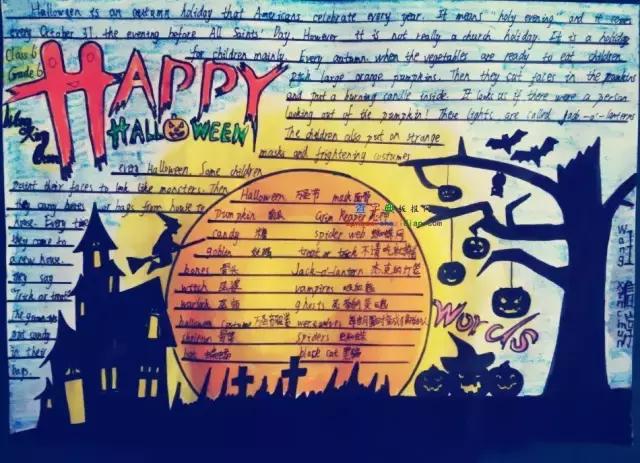 Halloween is an autumn holiday that Americans celebrate every year. It means "holy evening" and it comes
every October 31, the evening before All Saints' Day. However it is not really a church holiday. It is a holiday
for children mainly. Every autumn when the vegetables are ready to eat children
pick large orange pumpkins. Then they cut faces in the
and put a burning candle inside. It looks as if there were a person
looking out of the pumpkin! These lights are called
The children also put on strange
masks and frightening costumes
Class 6
Grade 6
HAPPY
HALLOWEEN
every Halloween. Some children
paint their faces to look like monsters. Then
they carry boxes or bags from house to
house. Every time
they come to
a new house
they say
Trick or treat
The
put candy
in their
bags.
Halloween 万圣节 mask 面骨
Pumpkin 南瓜 Grim Reaper 死神
candy 米唐 spider web 蜘蛛网
goblin 妖精 treat or trick 不请吃就捣蛋
bones 骨头 Jack-o-lantern 杰克的灯笼
witch 巫婆 vampires 吸血鬼
warlock 巫师 ghosts
halloween costume 万圣节服装 werewolves
skeleton 骨架 spiders 蜘蛛
bat black cat 黑猫
Words
Wang